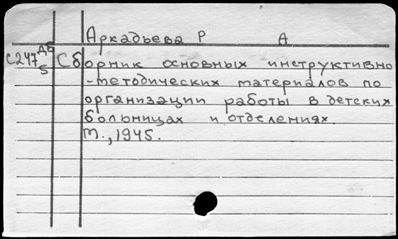 Аркадьева Р А
С247 дб 5 Сборник основных инструктивно
-методических материалов по
организации работы в детских
больницах и отделениях.
М., 1945.